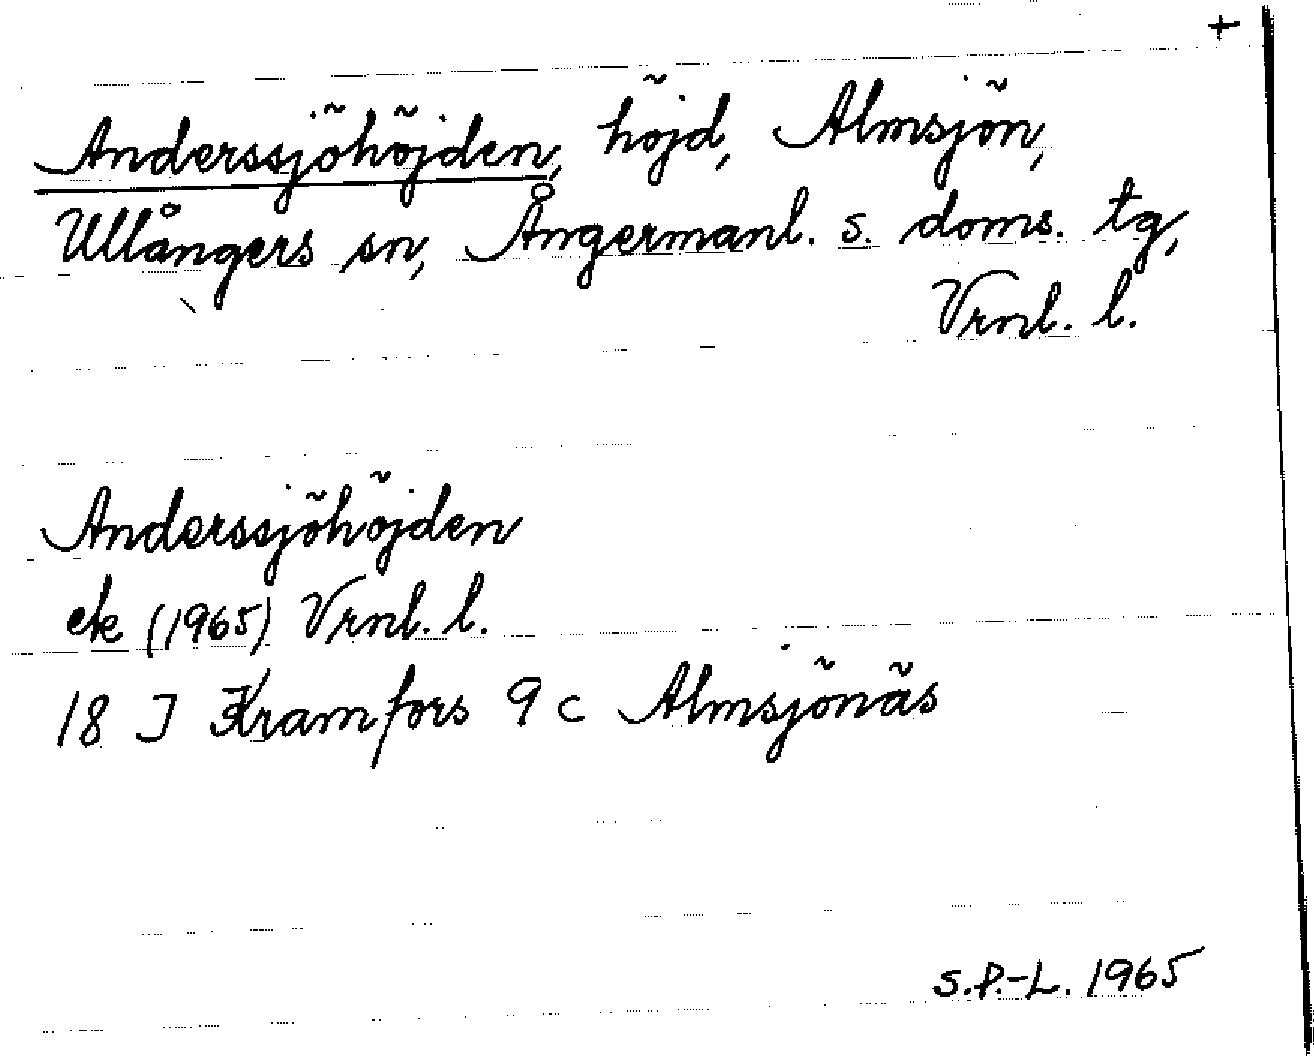 +
Anderssjöhöjden, höjd, Almsjön,
Ullångers sn, Ångermanl. s. doms. tg,
Vrnl. l.
Anderssjöhöjden
ek (1965) Vrnl. l.
18 J Kramfors 9 c Almsjönäs
S.P.-L. 1965